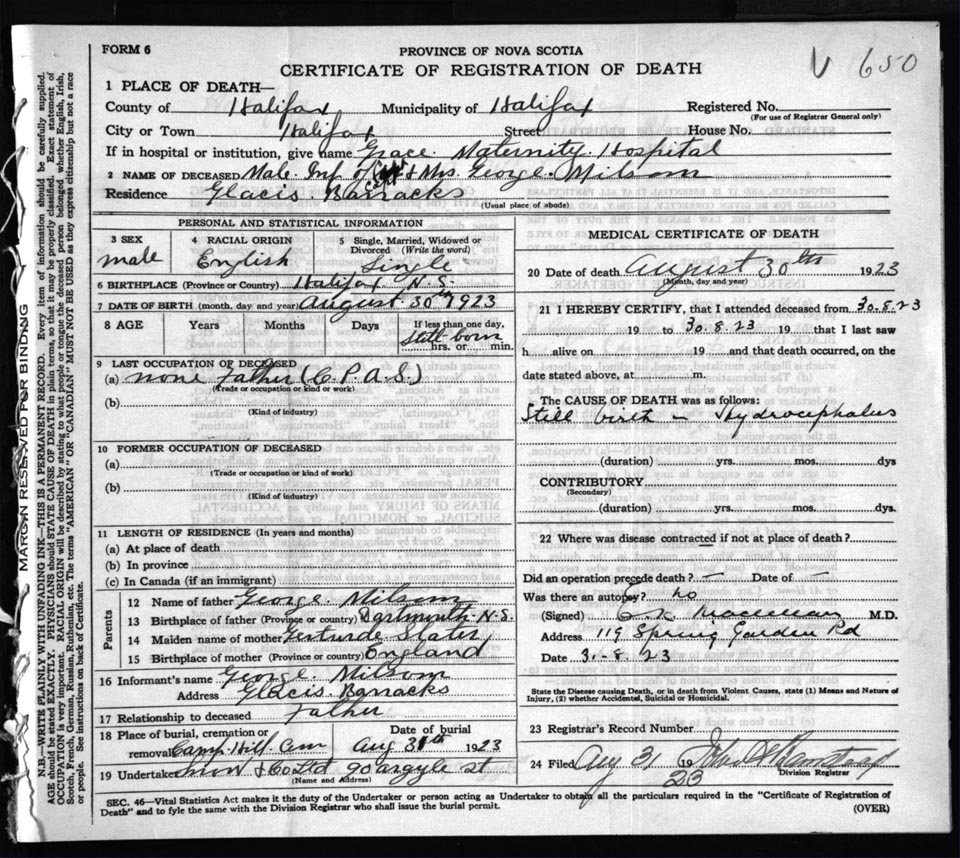 N.B.—WRITE PLAINLY WITH UNFADING INK—THIS IS A PERMANENT RECORD. Every item of information should be carefully supplied.
AGE should be stated EXACTLY. PHYSICIANS should STATE CAUSE OF DEATH in plain terms, so that it may be properly classified. Exact statement of
OCCUPATION is very important. RACIAL ORIGIN will be described by stating to what people or tongue the deceased person belonged, whether English, Irish,
Scotch, French, German, Russian, Ruthenian, etc. The terms "AMERICAN" or "CANADIAN" MUST NOT BE USED as they express citizenship but not a race
or people. See instructions on back of Certificate.
MARGIN RESERVED FOR BINDING
FORM 6
PROVINCE OF NOVA SCOTIA
CERTIFICATE OF REGISTRATION OF DEATH
V 650
1 PLACE OF DEATH—
County of Halifax Municipality of Halifax Registered No.
(For use of Registrar General only)
City or Town Halifax Street House No.
If in hospital or institution, give name Grace Maternity Hospital
2 NAME OF DECEASED Male Inf of & Mrs. George Milsom
Residence Glacis Barracks
(Usual place of abode)
PERSONAL AND STATISTICAL INFORMATION
3 SEX 4 RACIAL ORIGIN 5 Single, Married, Widowed or
Divorced (Write the word)
male English Single
6 BIRTHPLACE (Province or Country) Halifax N.S.
7 DATE OF BIRTH (month, day and year) August 30th 1923
8 AGE Years Months Days If less than one day,
Still born
hrs. or min.
9 LAST OCCUPATION OF DECEASED
(a) none Father (C.P.A.S.)
(Trade or occupation or kind or work)
(b)
(Kind of industry)
10 FORMER OCCUPATION OF DECEASED
(a)
(Trade or occupation or kind of work)
(b)
(Kind of industry)
11 LENGTH OF RESIDENCE (In years and months)
(a) At place of death
(b) In province
(c) In Canada (if an immigrant)
Parents
12 Name of father George Milsom
13 Birthplace of father (Province or country) Dartmouth N.S.
14 Maiden name of mother Gertrude Slater
15 Birthplace of mother (Province or country) England
16 Informant's name George Milsom
Address Glacis Barracks
17 Relationship to deceased Father
18 Place of burial, cremation or Date of burial
removal Camp Hill Cem Aug 31th 1923
19 Undertaker Snow & Co Ltd 90 Argyle st
(Name and Address)
MEDICAL CERTIFICATE OF DEATH
20 Date of death August 30th 1923
(Month, day and year)
21 I HEREBY CERTIFY, that I attended deceased from 30.8.23
19 to 30.8.23 19 that I last saw
h alive on 19 and that death occurred, on the
date stated above, at m.
The CAUSE OF DEATH was as follows:
Still birth - Hydrocephalus
(duration) yrs. mos. dys
CONTRIBUTORY
(Secondary)
(duration) yrs. mos. dys.
22 Where was disease contracted if not at place of death?
Did an operation precede death? — Date of —
Was there an autopsy? no
(Signed) M.D.
Address 119 Spring Garden Rd
Date 31-8.23
State the Disease causing Death, or in death from Violent Causes, state (1) Means and Nature of
Injury, (2) whether Accidental, Suicidal or Homicidal.
23 Registrar's Record Number
24 Filed Aug 31 19 23
Division Registrar
SEC. 46—Vital Statistics Act makes it the duty of the Undertaker or person acting as Undertaker to obtain all the particulars required in the "Certificate of Registration of
Death" and to fyle the same with the Division Registrar who shall issue the burial permit.
(OVER)